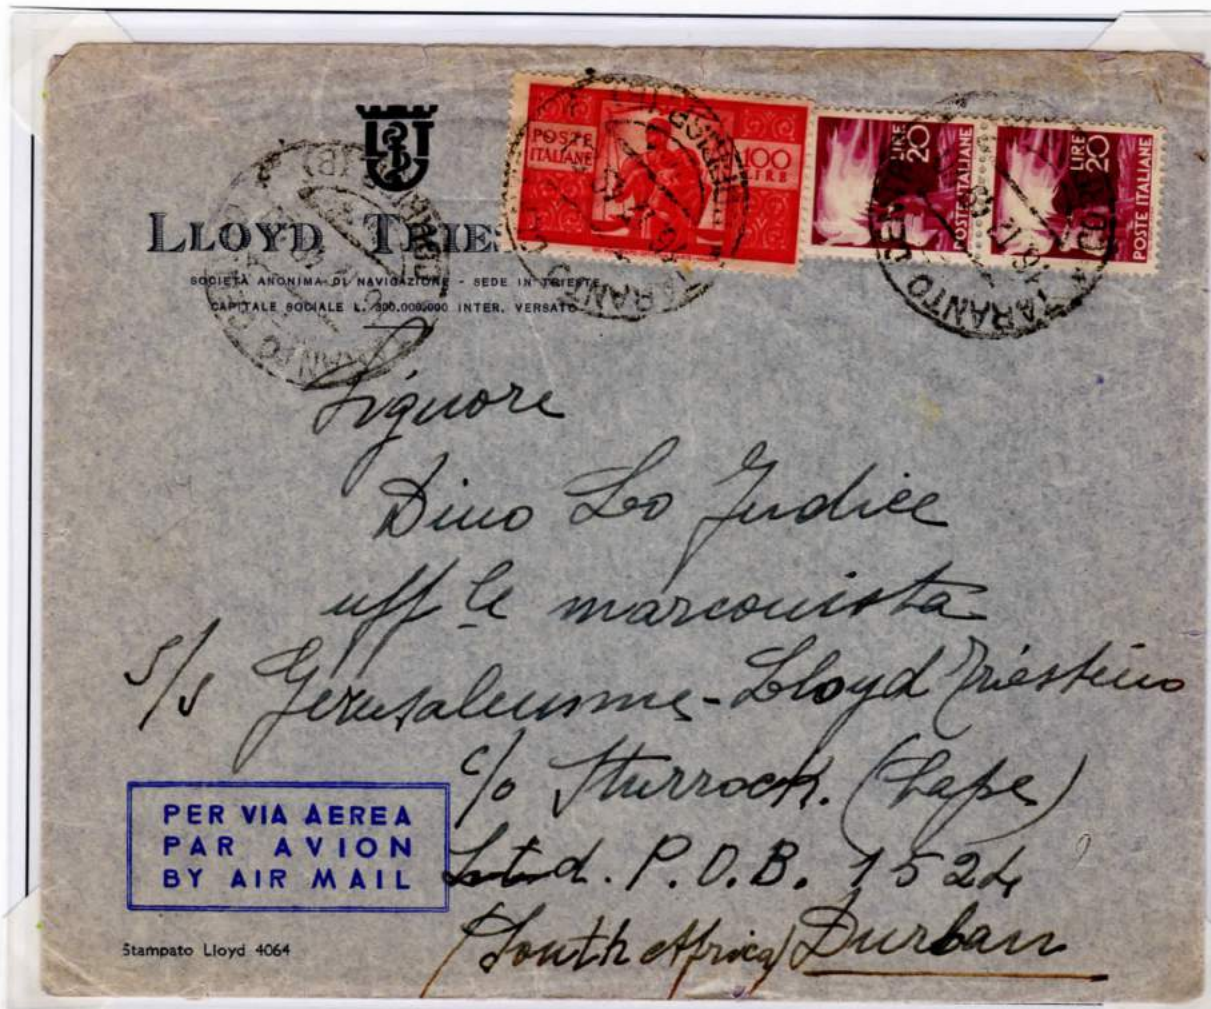 LLOYD TRIES
SOCIETÀ ANONIMA DI NAVIGAZIONE - SEDE IN TRIESTE
CAPITALE SOCIALE L. 300.000.000 INTER. VERSATO
POSTE ITALIANE
100 LIRE
LIRE 20
POSTE ITALIANE
LIRE 20
POSTE ITALIANE
TARANTO
TARANTO
TARANTO CENTRO
Signore
Dino Lo Judice
uff le marconista
s/s Gerusalemme - Lloyd Triestino
c/o Sturrock. (Cape)
Ltd. P.O.B. 1524
(South Africa) Durban
PER VIA AEREA
PAR AVION
BY AIR MAIL
Stampato Lloyd 4064